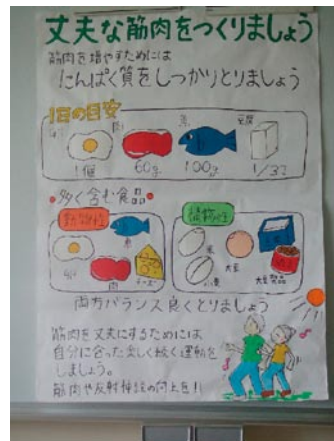 丈夫な筋肉をつくりましょう
筋肉を増やすためには
たんぱく質をしっかりとりましょう
1日の目安
卵 肉 魚 豆腐
1個 60g 100g 1/3丁
多く含む食品
動物性
魚
卵
肉
チーズ
植物性
米
大豆
小麦
大豆製品
両方バランス良くとりましょう
筋肉を丈夫にするためには
自分に合った楽しく続く運動を
しましょう。
筋肉や反射神経の向上を!!